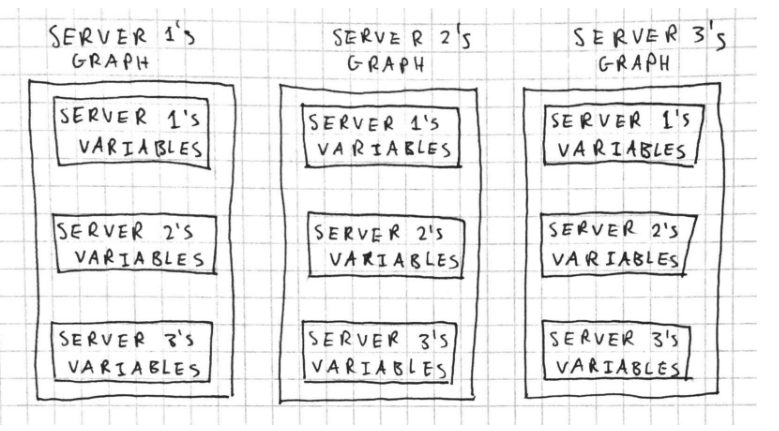 SERVER 1's
GRAPH
SERVER 1's
VARIABLES
SERVER 2's
VARIABLES
SERVER 3's
VARIABLES
SERVER 2's
GRAPH
SERVER 1's
VARIABLES
SERVER 2's
VARIABLES
SERVER 3's
VARIABLES
SERVER 3's
GRAPH
SERVER 1's
VARIABLES
SERVER 2's
VARIABLES
SERVER 3's
VARIABLES